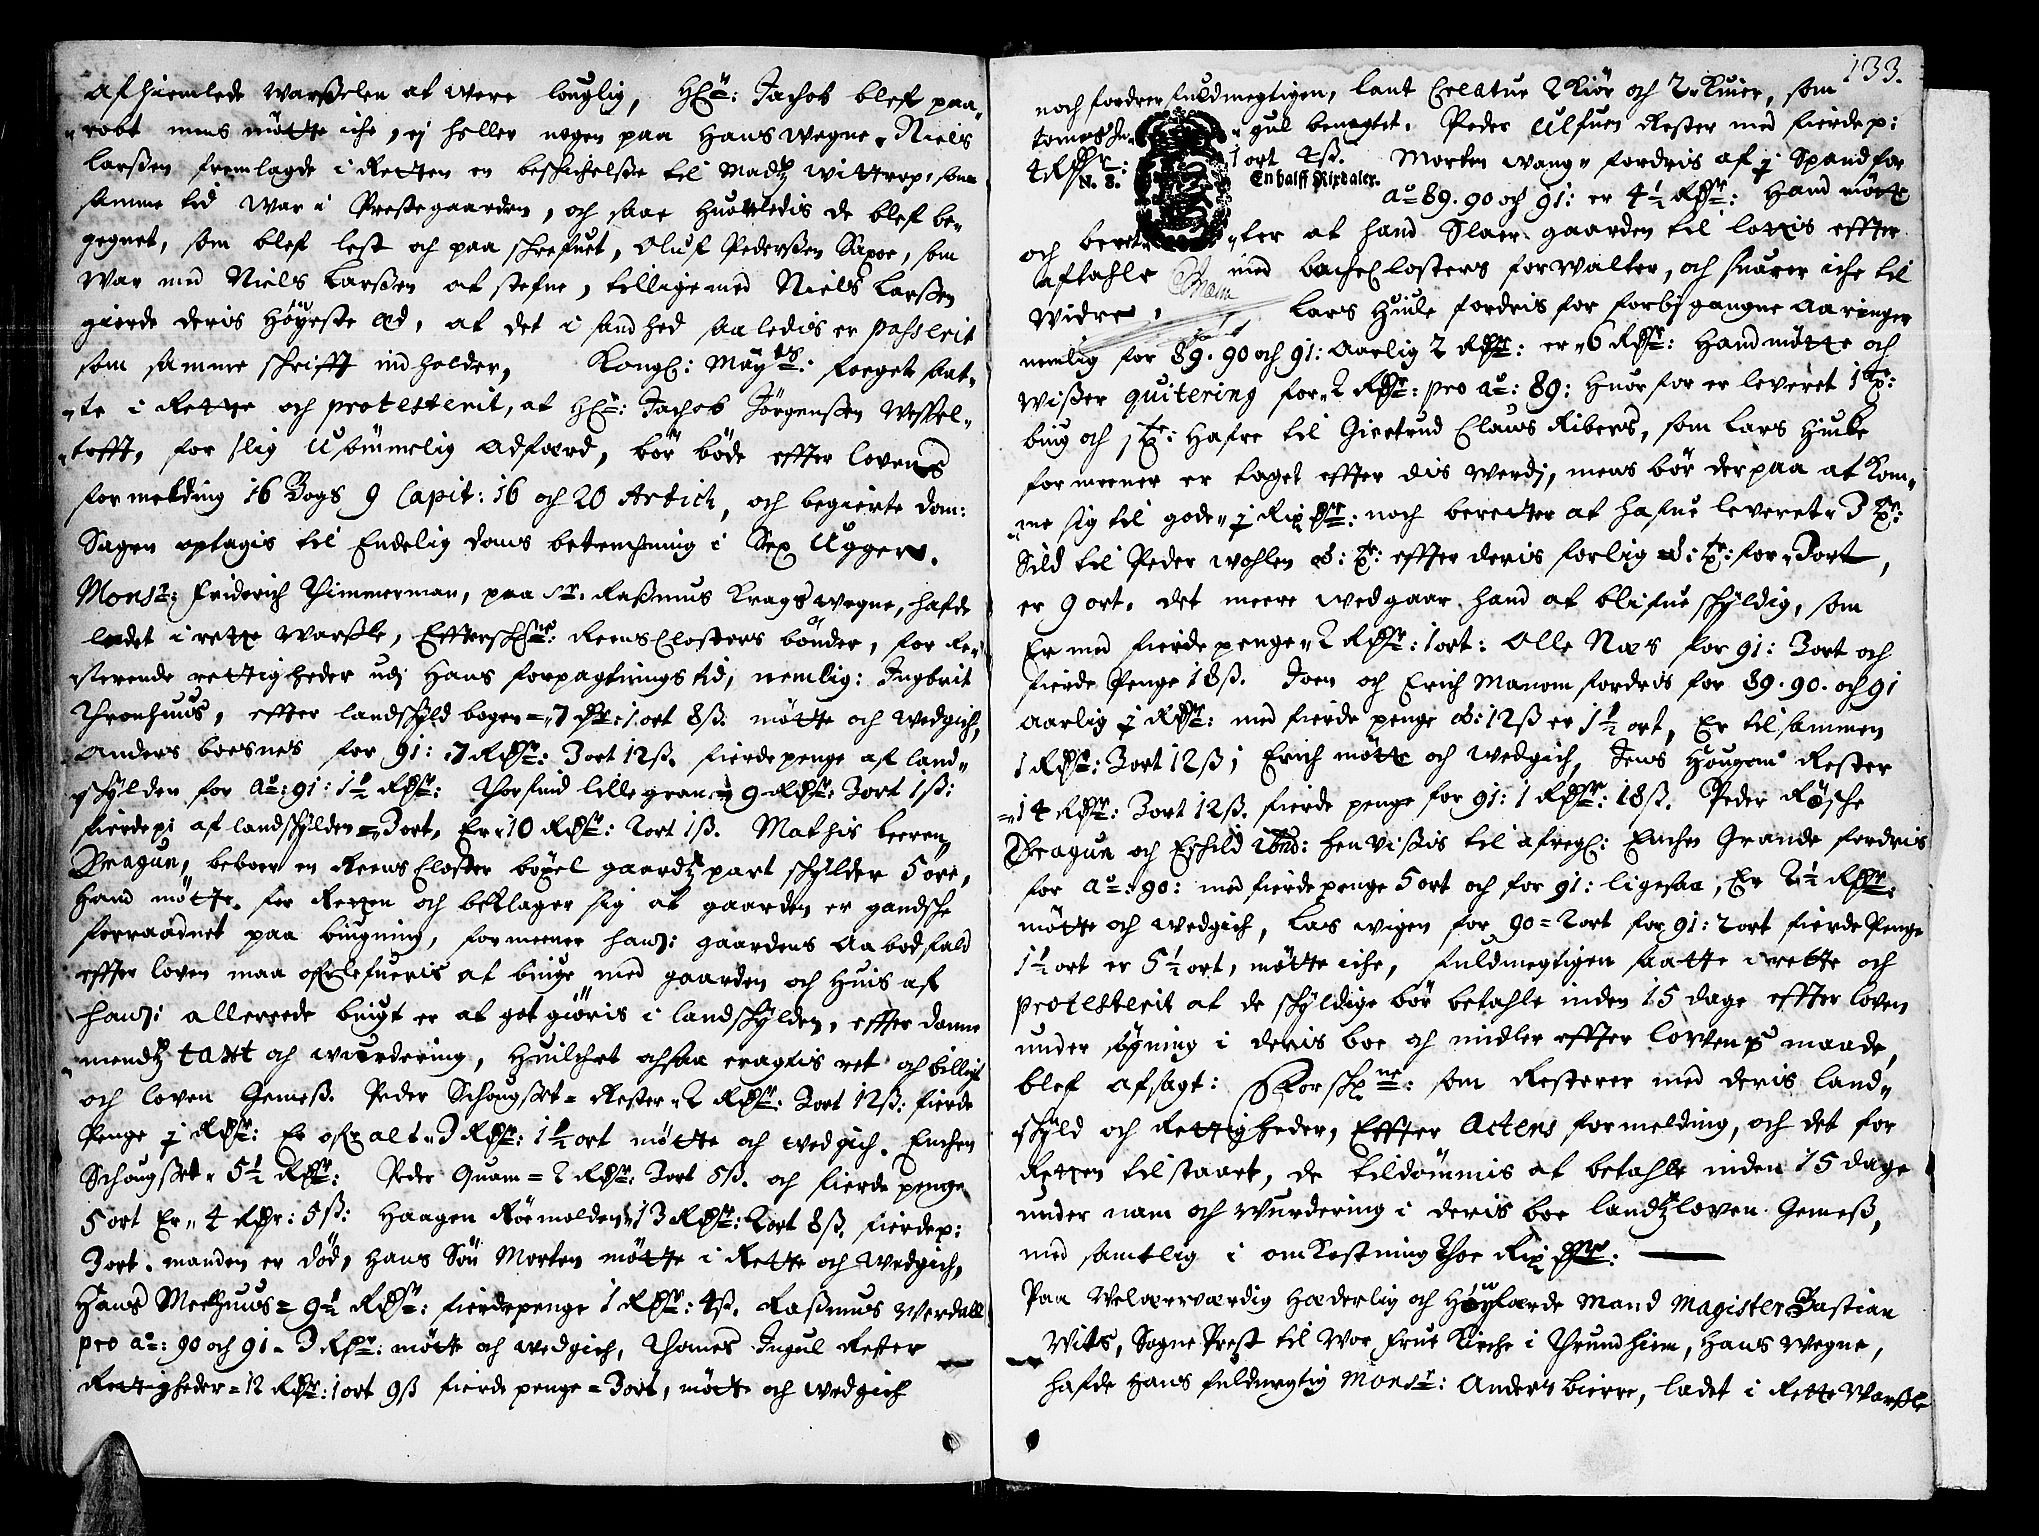 afhiemlede warßelen at were louglig, Hr: Jachob blef paa„
„robt mens møtte iche, ej heller nogen paa Hans wegne. Niels
larßen fremlagde i Retten en beschichelße til Madtz Wittrop, som
samme tid war i Prestegaarden, och saae huorledis de blef be„
gegnet, som blef lest och paa schrefuet, Oluf Pederßen Sapoe, som
war med Niels Larßen at stefne, tillige med Niels Larßen
giorde deris Høyeste æd, at det i sandhed saaledis er passerit
som samme schrifft indholder, Kongl: Maytz: foeget sat„
„te i Rette och protesterit, at Hr: Jachob Jørgenßen Wessel„
„tofft, for slig Usømmelig adfærd, bør bøde effter lovens
formelding 16 Bogs 9 Capit: 16 och 20 Artich, och begierte dom:
Sagen optagis til Endelig doms betenchning i Sex Ugger.
Monsr: Friderich Thimmerman, paa Sr. Raßmus Krags wegne, hafde
ladet i rette warßle, Effterschrne: Reens Closters bønder, for Re„
sterende rettigheder udj Hans forpagtnings tid, nemlig: Ingbrit
Thronhuus, effter landschyld bogen = 7 Rdr: 1 ort 8 ß: møtte och wedgich,
Anders boesnes for 91: 7 Rdr: 3 ort 12 ß. fierde penge af land„
schylden for Ao: 91: 1½ Rdr: Thorfind lille gran = 9 Rdr: 3 ort 1 ß:
fierde p: af landschylden = 3 ort, Er 10 Rdr: 2 ort 1 ß. Mathis leeren
Dragun, beboer en Reens Closter böxel gaardtz part schylder 5 øre,
Hand møtte for Retten och beklager sig at gaarden er gandsche
forraadnet paa bugning, formeener hans: gaardens Aabodfald
effter loven maa ofrlefueris at bruge med gaarden och huis af
hans: allereede bugt er at gotgiøris i landschylden, effter danne
mendtz taxt och wurdering, Huilchet ochsaa eragtis ret och billigt
och loven Gemeß. Peder Schougset = Rester 2 Rdr: 2 ort 12 ß: fierde
Penge j Rdr: Er ofr alt 3 Rdr: 1½ ort møtte och wedgich. Enchen
Schougset 5½ Rdr: Peder Quam = 2 Rdr: 3 ort 5 ß. och fierde penge
5 ort Er 4 Rdr: 5 ß: Haagen Rørmolden 13 Rdr: 2 ort 8 ß. fierde p:
3 ort. manden er død, Hans Søn Morten møtte i Rette och wedgich,
Hans Meehuus = 9½ Rdr: fierdepenge 1 Rdr: 4 ß. Raßmus Werdall
pro ao: 90 och 91 = 3 Rdr: møtte och wedgich, Thomes Ingul Rester
Rettigheder = 12 Rdr: 1 ort 9 ß fierde penge = 3 ort, møtte och wedgich
133.
noch fordrer fuldmegtigen, lant Creatur 2 Kiör och 2 Kuier, som
tomes In„ „gul benegtet. Peder Ulfuen Rester med fierde p:
4 Rdr: 1 ort 4 ß. Morten wang fordris af j Spand for
N. 8. En halff Rixdaler.
ao 89. 90 och 91: er 4½ Rdr: Hand møtte
och beret„ „ter at hand Slaer gaarden til lottis effter
aftahle med bachel Closters forwalter, och suarer iche til
widre, Lars Huile fordris for forbj gangne aaringer
nemlig for 89. 90 och 91: aarlig 2 Rdr: er 6 Rdr: Hand møtte och
wißer quitering for 2 Rdr: pro ao: 89: huor for er leveret 1 tr:
bug och 1 tr: Hafre til Giertrud Claus Ribers, som Lars Huile
formeener er taget effter dis werdj, mens bør derpaa at Kom„
„me sig til gode j Rix dr: noch beretter at hafue leveret 3 tr:
Sild til Peder wohlen á: tr: effter deris forlig á: tr: for 3 ort,
er 9 ort. det meere wedgaar hand at blifue schyldig, som
Er med fierde penge 2 Rdr: 1 ort: Olle Næs for 91: 3 ort och
fierde Penge 18 ß. Joen och Erich Manom fordris for 89. 90. och 91
aarlig j Rdr: med fierde penge á: 12 ß er 1½ ort, Er tilsammen
1 Rdr: 3 ort 12 ß; Erich møtte och wedgich, Jens Hougom Rester
= 14 Rdr: 3 ort 12 ß. fierde penge for 91: 1 Rdr: 18 ß. Peder Røsche
Dragun och Eschild ibnd: henvißis til afregl: Enchen Grande fordris
for ao: 90: med fierde penge 5 ort och for 91: ligesaa, Er 2½ Rdr:
møtte och wedgich, Lars wigen for 90 = 2 ort for 91: 2 ort fierde Penge
1½ ort er 5½ ort, møtte iche, fuldmegtigen satte i rette och
protesterit at de schyldige bør betahle inden 15 dage effter loven
under søgning i deris boe och midler effter lovvens maade,
blef afsagt: Forschrne: som Resterer med deris land„
schyld och Rettigheder, Effter Actens formelding, och det for
Retten tilstaaet, de tildømmis at betahle inden 15 dage
under nam och wurdering i deris boe landtzloven Gemeß,
med samtlig i omkostning Thoe Rix dr:
Paa Welærværdig Hæderlig och Høylærde Mand Magister Bastian
Wits, Sogne Prest til Wor Frue Kirche i Thrundhiem, Hans wegne,
hafde Hans fuldmegtig Monsr: Anders bierre, ladet i Rette Warßle